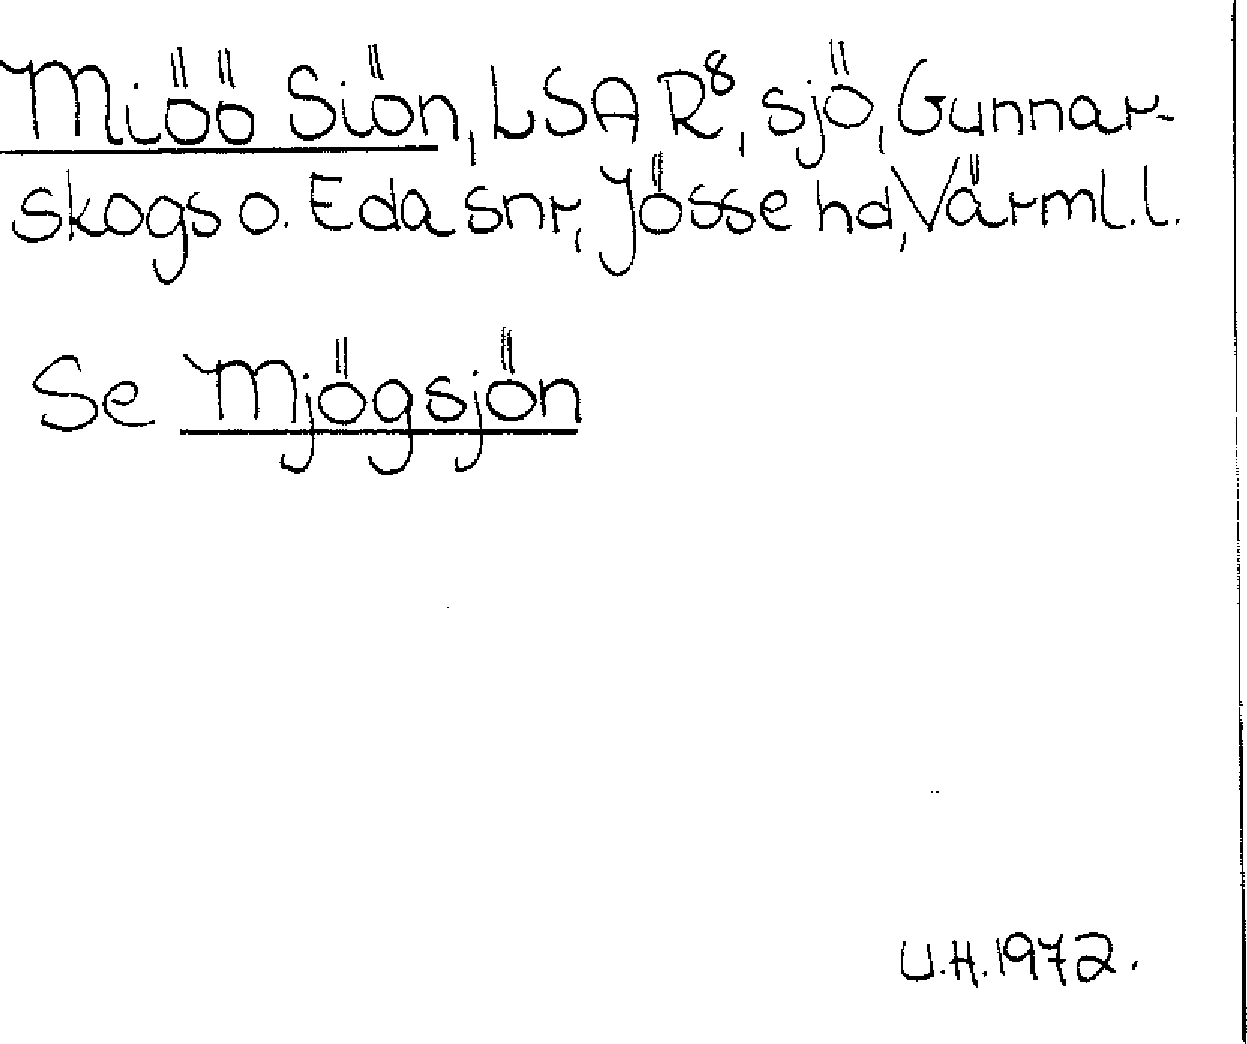 Miöö Siön, LSA R⁸, sjö, Gunnar-
skogs o. Eda snr, Jösse hd, Värml. l.
Se Mjögsjön
U.H. 1972.